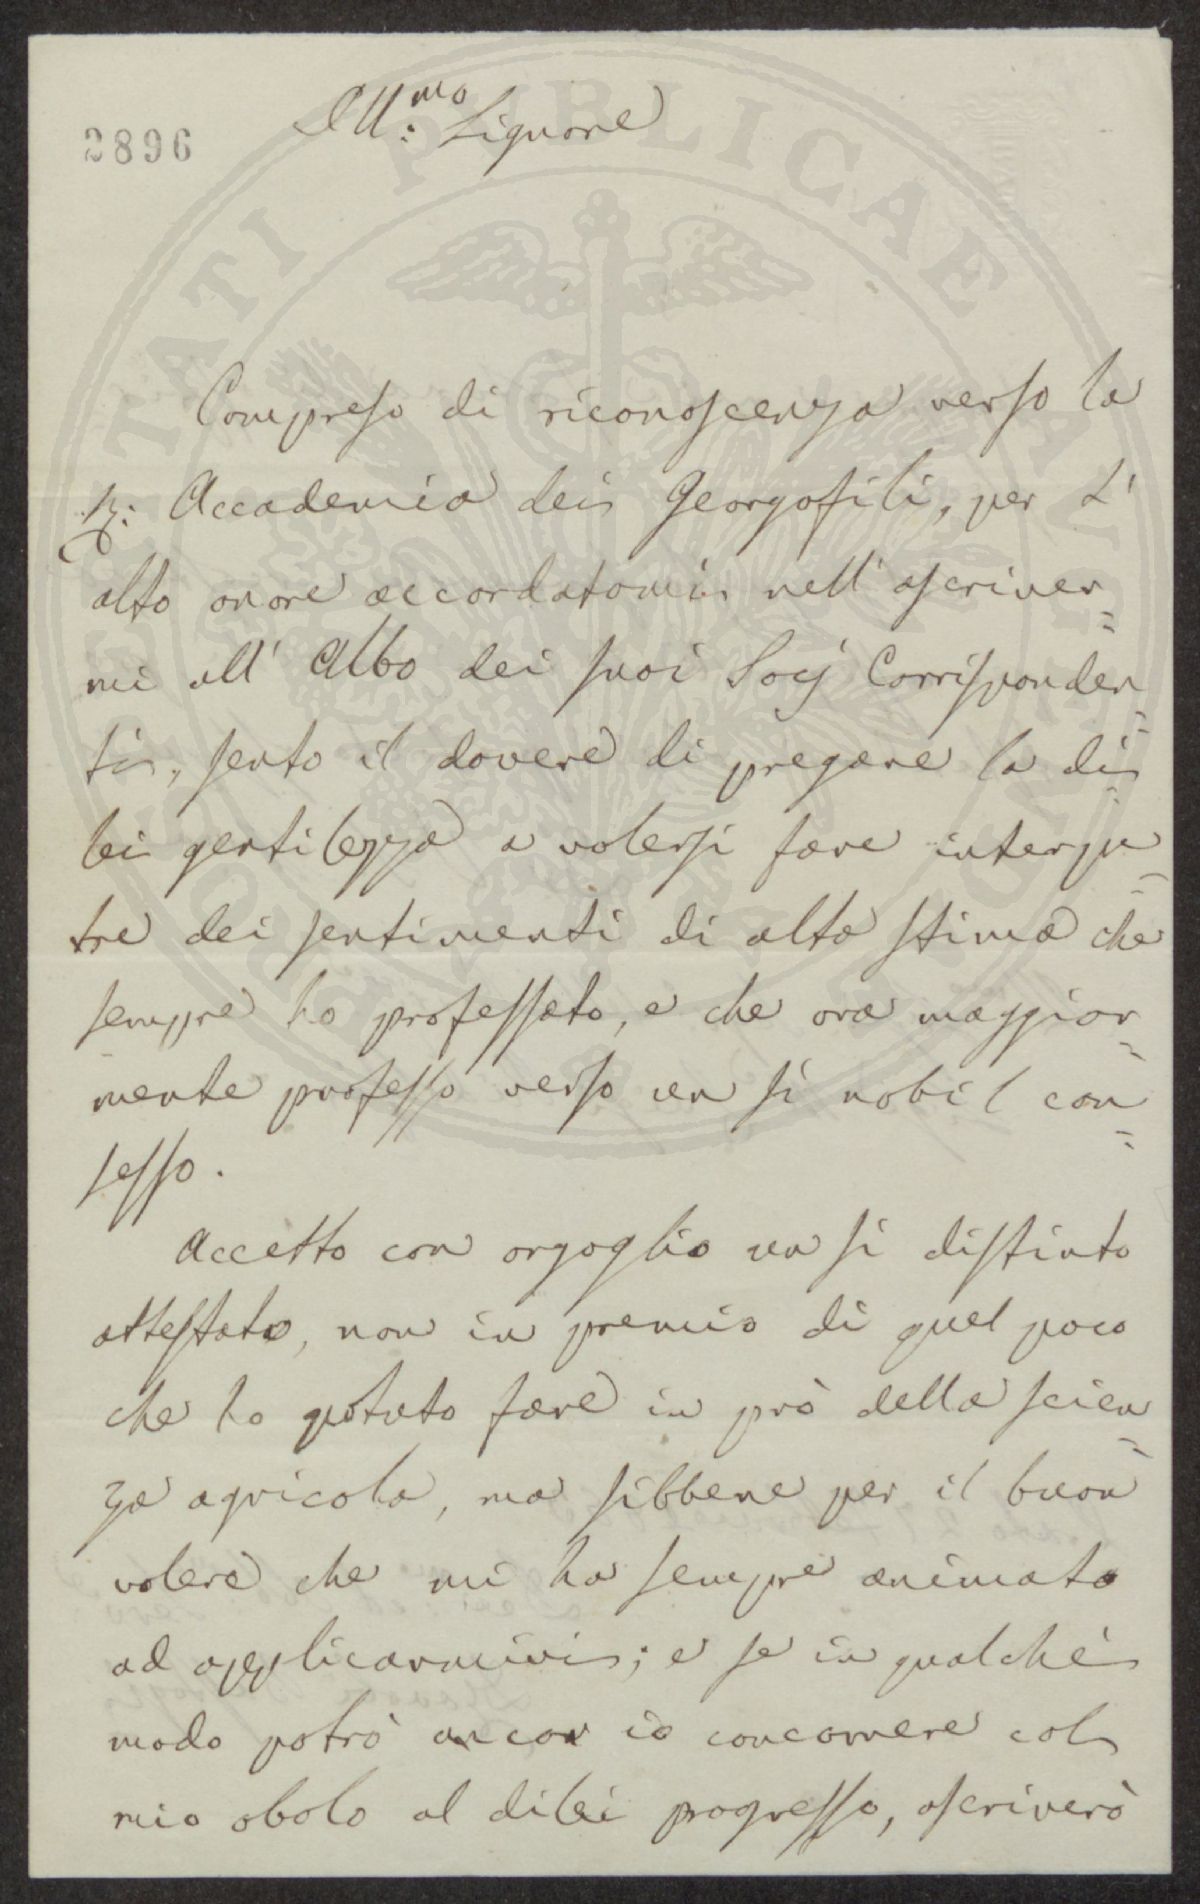 2896
Ill:mo Signore
Compreso di riconoscenza verso la
R: Accademia dei Georgofili, per l'
alto onore accordatomi nell'ascriver=
mi all'Albo dei suoi Socj Corrisponden=
ti, sento il dovere di pregare la di
lei gentilezza a volersi fare interpe=
tre dei sentimenti di alta stima che
sempre ho professato, e che ora maggior=
mente professo verso un sì nobil con=
sesso.
Accetto con orgoglio un sì distinto
attestato, non in premio di quel poco
che ho potuto fare in prò della scien=
za agricola, ma sibbene per il buon
volere che mi ha sempre animato
ad applicarmivi; e se in qualche
modo potrò ancor io concorrere col
mio obolo al dilei progresso, ascriverò
PUBLICAE